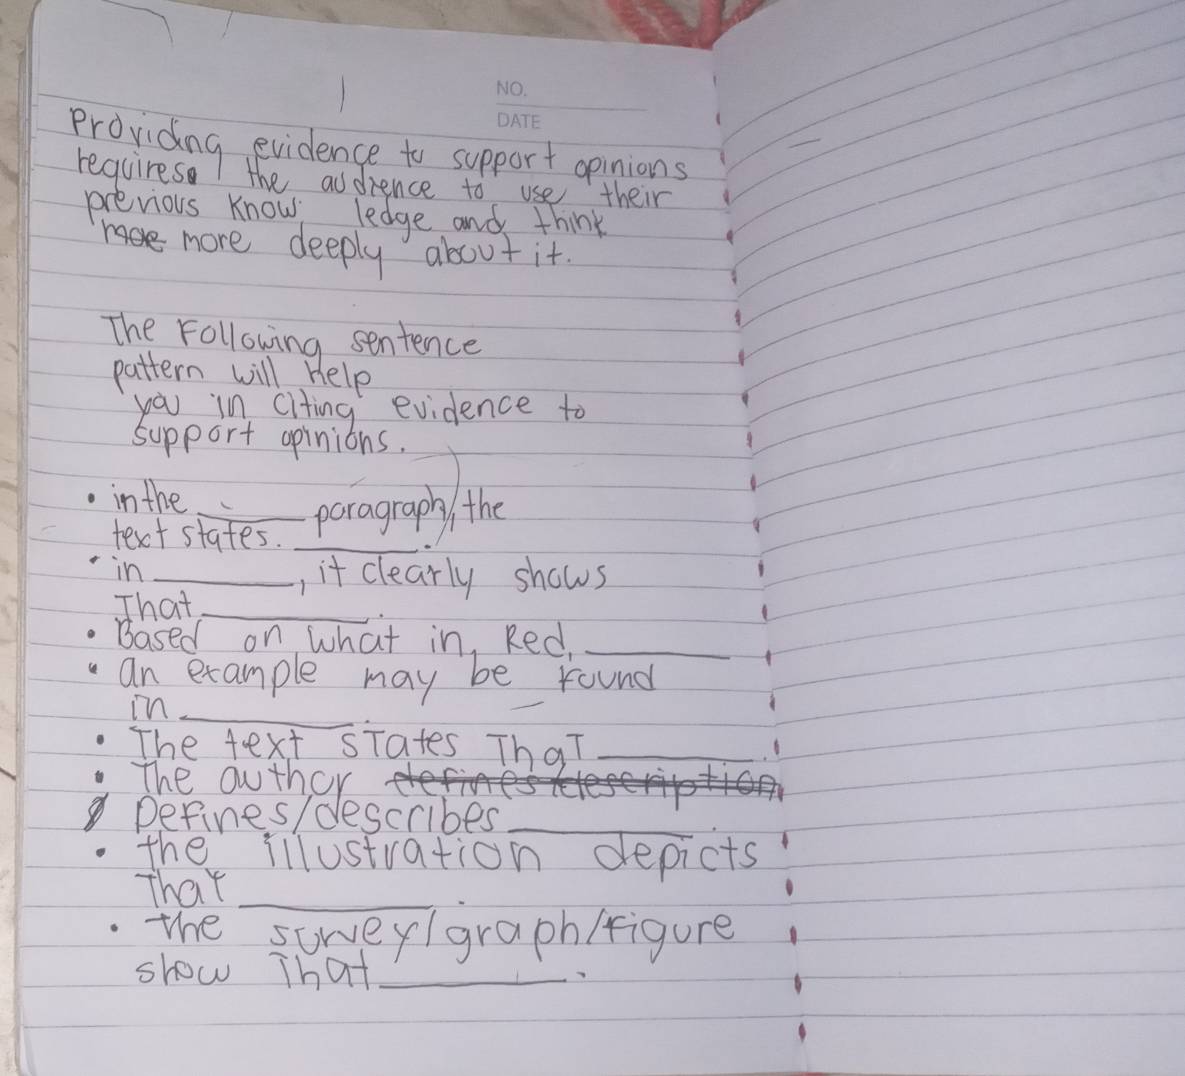 1
NO.
DATE
Providing evidence to support opinions
requires the audience to use their
previous know ledge and think
more deeply about it.
The Following sentence
pattern will Help
you in citing evidence to
support opinions.
• in the ______ paragraph, the
text states. ______.
• in ______, it clearly shows
That ______.
• Based on what in, Red, ______
• an example may be Found
in ______.
• The text sTates ThaT ______.
• The author defines/description
Defines/describes ______.
• the illustration depicts
That ______.
• the survey/graph/Figure
show That ______.